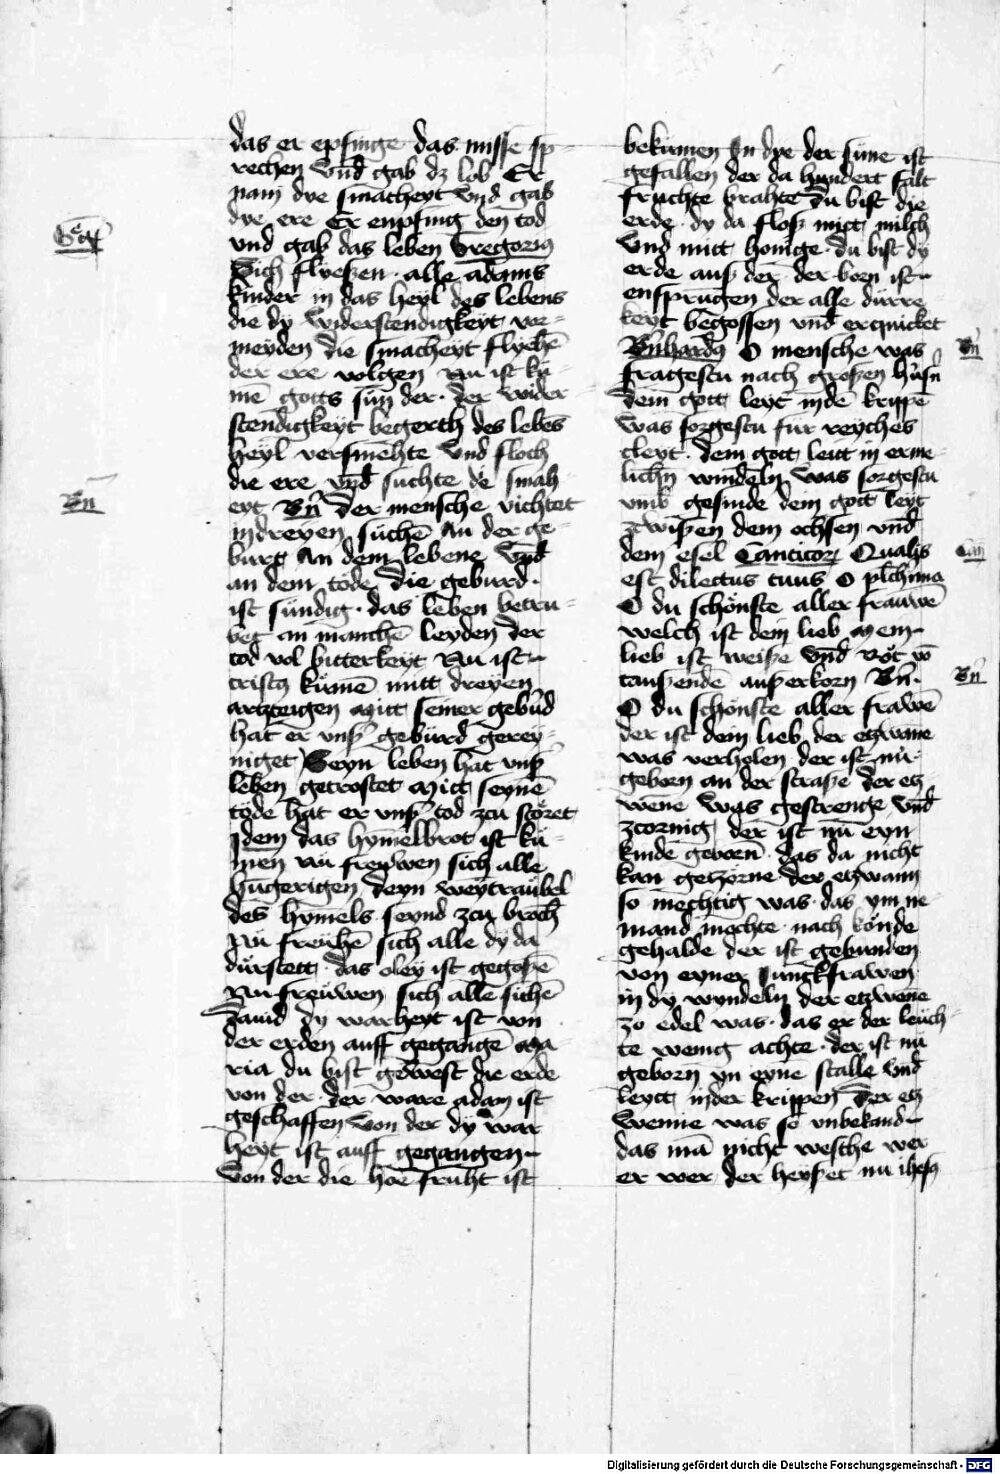 das er epfinge das misse sp-
rechen Vnd gab dz lob Er
nam dye smacheyt vnd gab
dye ere Er enpfing den tod
vnd gab das leben Gregorius
Sich flyeszen. alle adams
kinder in das heyl des lebens
die dy widerstendigkeyt vor-
meyden die smacheyt flyehē
der ere volgen Nu ist ku-
mē gotts sun der. der wider
stendigkeyt begerth des lebēs
heyl versmehte vnd floch
die ere vnd suchte de smah
eyt Bn̄ Der mensche richtet
in dreyen suchē An der ge-
burt An dem lebene Vnd
an dem tode die geburd.
ist sundig. das leben betru-
bet an manchē leyden der
tod vol bitterkeyt Nu ist
cristus kumē mitt dreyen
artzteigen Mitt seiner gebud
hat er vnsz geburd gerey-
niget Seyn leben hat vnsz
leben getrostet Mitt seynē
tode hat er vnsz tod zcu storet
Idem das hymelbrot ist ku-
men Nu freywen sich alle
hungerigen deyn weytraubel
des hymels seynd zcu broch
Nu freuhē sich alle dy da
durstett das oley ist gegoszē
Nu freuwen sich alle sichē
Dauid dy warheyt ist von
der erden auff gegangē Ma-
ria du bist gewest die erde
von der. der ware adam ist
geschaffen Von der dy war
heyt ist auff gegangen
Von der die hoe fruht ist
bekumen In dye der sune ist
gefallen der da hundert falt
fruchte brahte Du bist die
erde. dy da flosz mitt milch
Vnd mitt honige. du bist dy
erde ausz der. der born ist
ensprungen der alle durre
keyt begossen vnd erquicket
Bnhardus O mensche was
fragestu nach groszen husn̄
dem gott leyt in de krippē
was sorgestu fur reyches
cleyt. dem gott leitt in erme-
lichn windeln Was sorgestu
vmb gesinde dem gott leyt
zwiszen dem ochsen vnd
dem esel Canticor Qualis
est dilectus tuus O plchima
O du schonste aller frauwē
welch ist dein lieb Mein
lieb ist weisze vnd Rot vō
tauszendē auszerkorn Bn̄.
O du schonste aller frawē
der ist dem lieb der etzwāne
was verholen der ist nu.
geborn an der strasze der etz
wene Was gestrenge vnd
zcornig der ist nu eyn
kinde geborn. das da nicht
kan getzorne der etzwann
so mechtig was. das ym ne-
mand mochte nach konde
gehalde der ist gebunden
von eyner Junckfrawen
in dy wyndeln der etzwene
zo edel was. das er der leuch-
te wenig achte. der ist nu
geborn yn eyne stalle Vnd
leytt in der krippen Der etz
Wenne was so vnbekand
das mā nicht weste wer
er wer der heyszet nu ihesus
Bn̄
Bn̄
Can
Bn̄
Digitalisierung gefördert durch die Deutsche Forschungsgemeinschaft - DFG